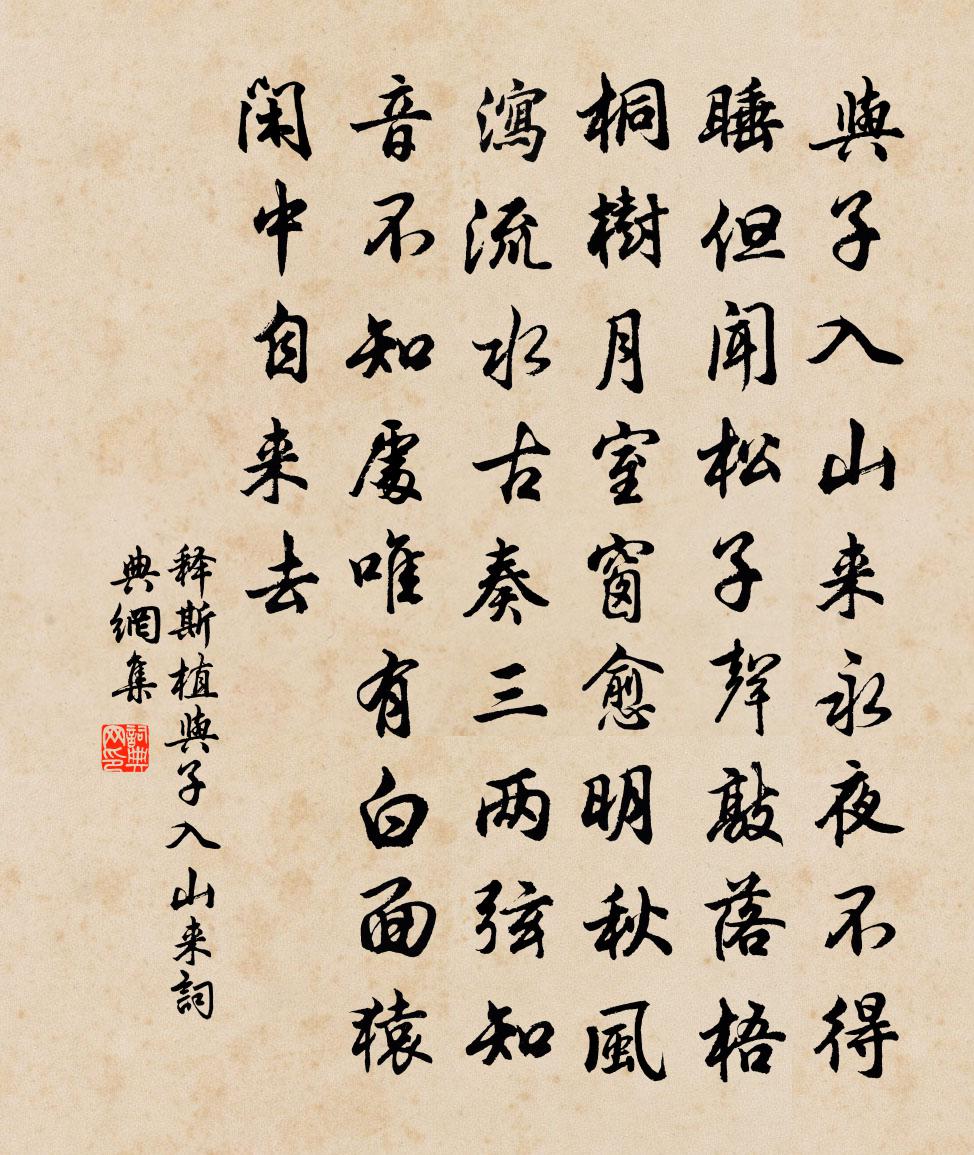 與子入山来永夜不得
睡但聞松子聲敲落梧
桐樹月室窗愈明秋風
瀉流水古奏三两弦知
音不知處唯有白面猿
閑中自来去
释斯植與子入山来詞
典網集
詞典网印